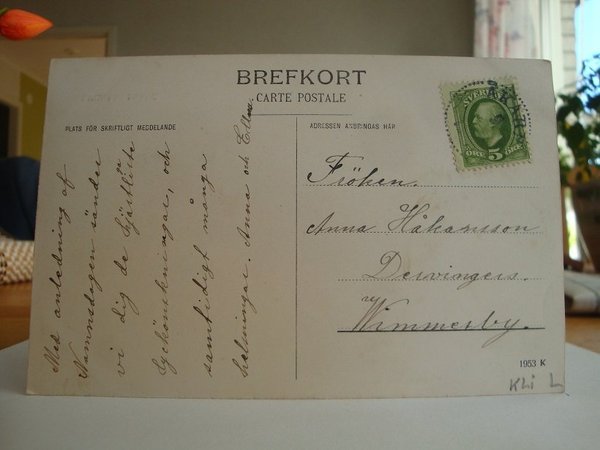 BREFKORT
CARTE POSTALE
PLATS FÖR SKRIFTLIGT MEDDELANDE
ADRESSEN ANBRINGAS HÄR
SVERIGE
ÖRE 5 ÖRE
Med anledning af
Namnsdagen sänder
vi dig de hjärtligste
lyckönskningar, och
samtidigt många
helsningar. Anna och Ellen
Fröken.
Anna Håkansson
Wimmerby.
1953 K